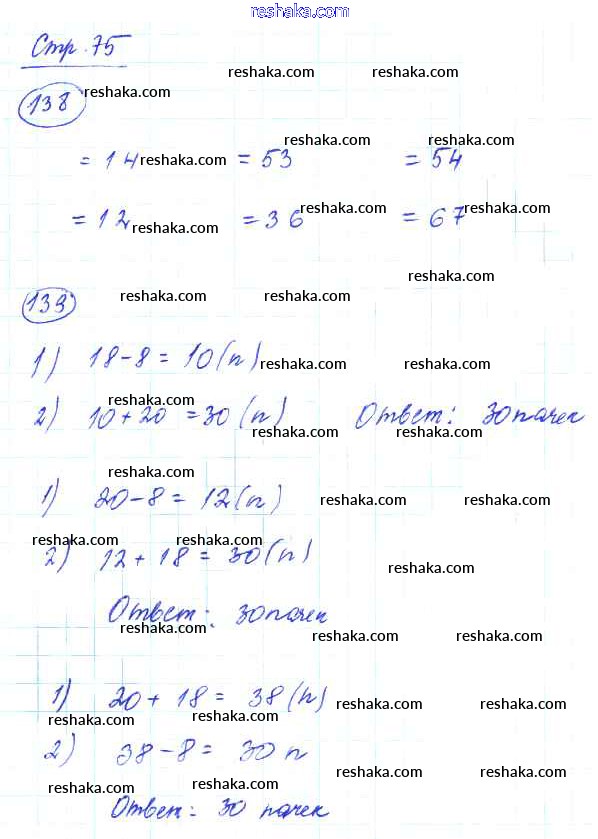 reshaka.com
Стр. 75
reshaka.com reshaka.com
138 reshaka.com
reshaka.com reshaka.com
= 14 reshaka.com = 53 = 54
reshaka.com reshaka.com
= 12 reshaka.com = 36 = 67
reshaka.com
139 reshaka.com reshaka.com
1) 18-8 = 10 (п) reshaka.com reshaka.com
reshaka.com
2) 10 + 20 = 30 (п) Ответ: 30 пачек
reshaka.com reshaka.com
reshaka.com
1) 20-8 = 12 (п) reshaka.com reshaka.com
reshaka.com reshaka.com
2) 12 + 18 = 30 (п) reshaka.com
Ответ: 30 пачек
reshaka.com reshaka.com reshaka.com
1) 20 + 18 = 38 (п) reshaka.com reshaka.com
reshaka.com reshaka.com
2) 38-8 = 30 п
reshaka.com reshaka.com
reshaka.com reshaka.com
Ответ: 30 пачек
reshaka.com reshaka.com